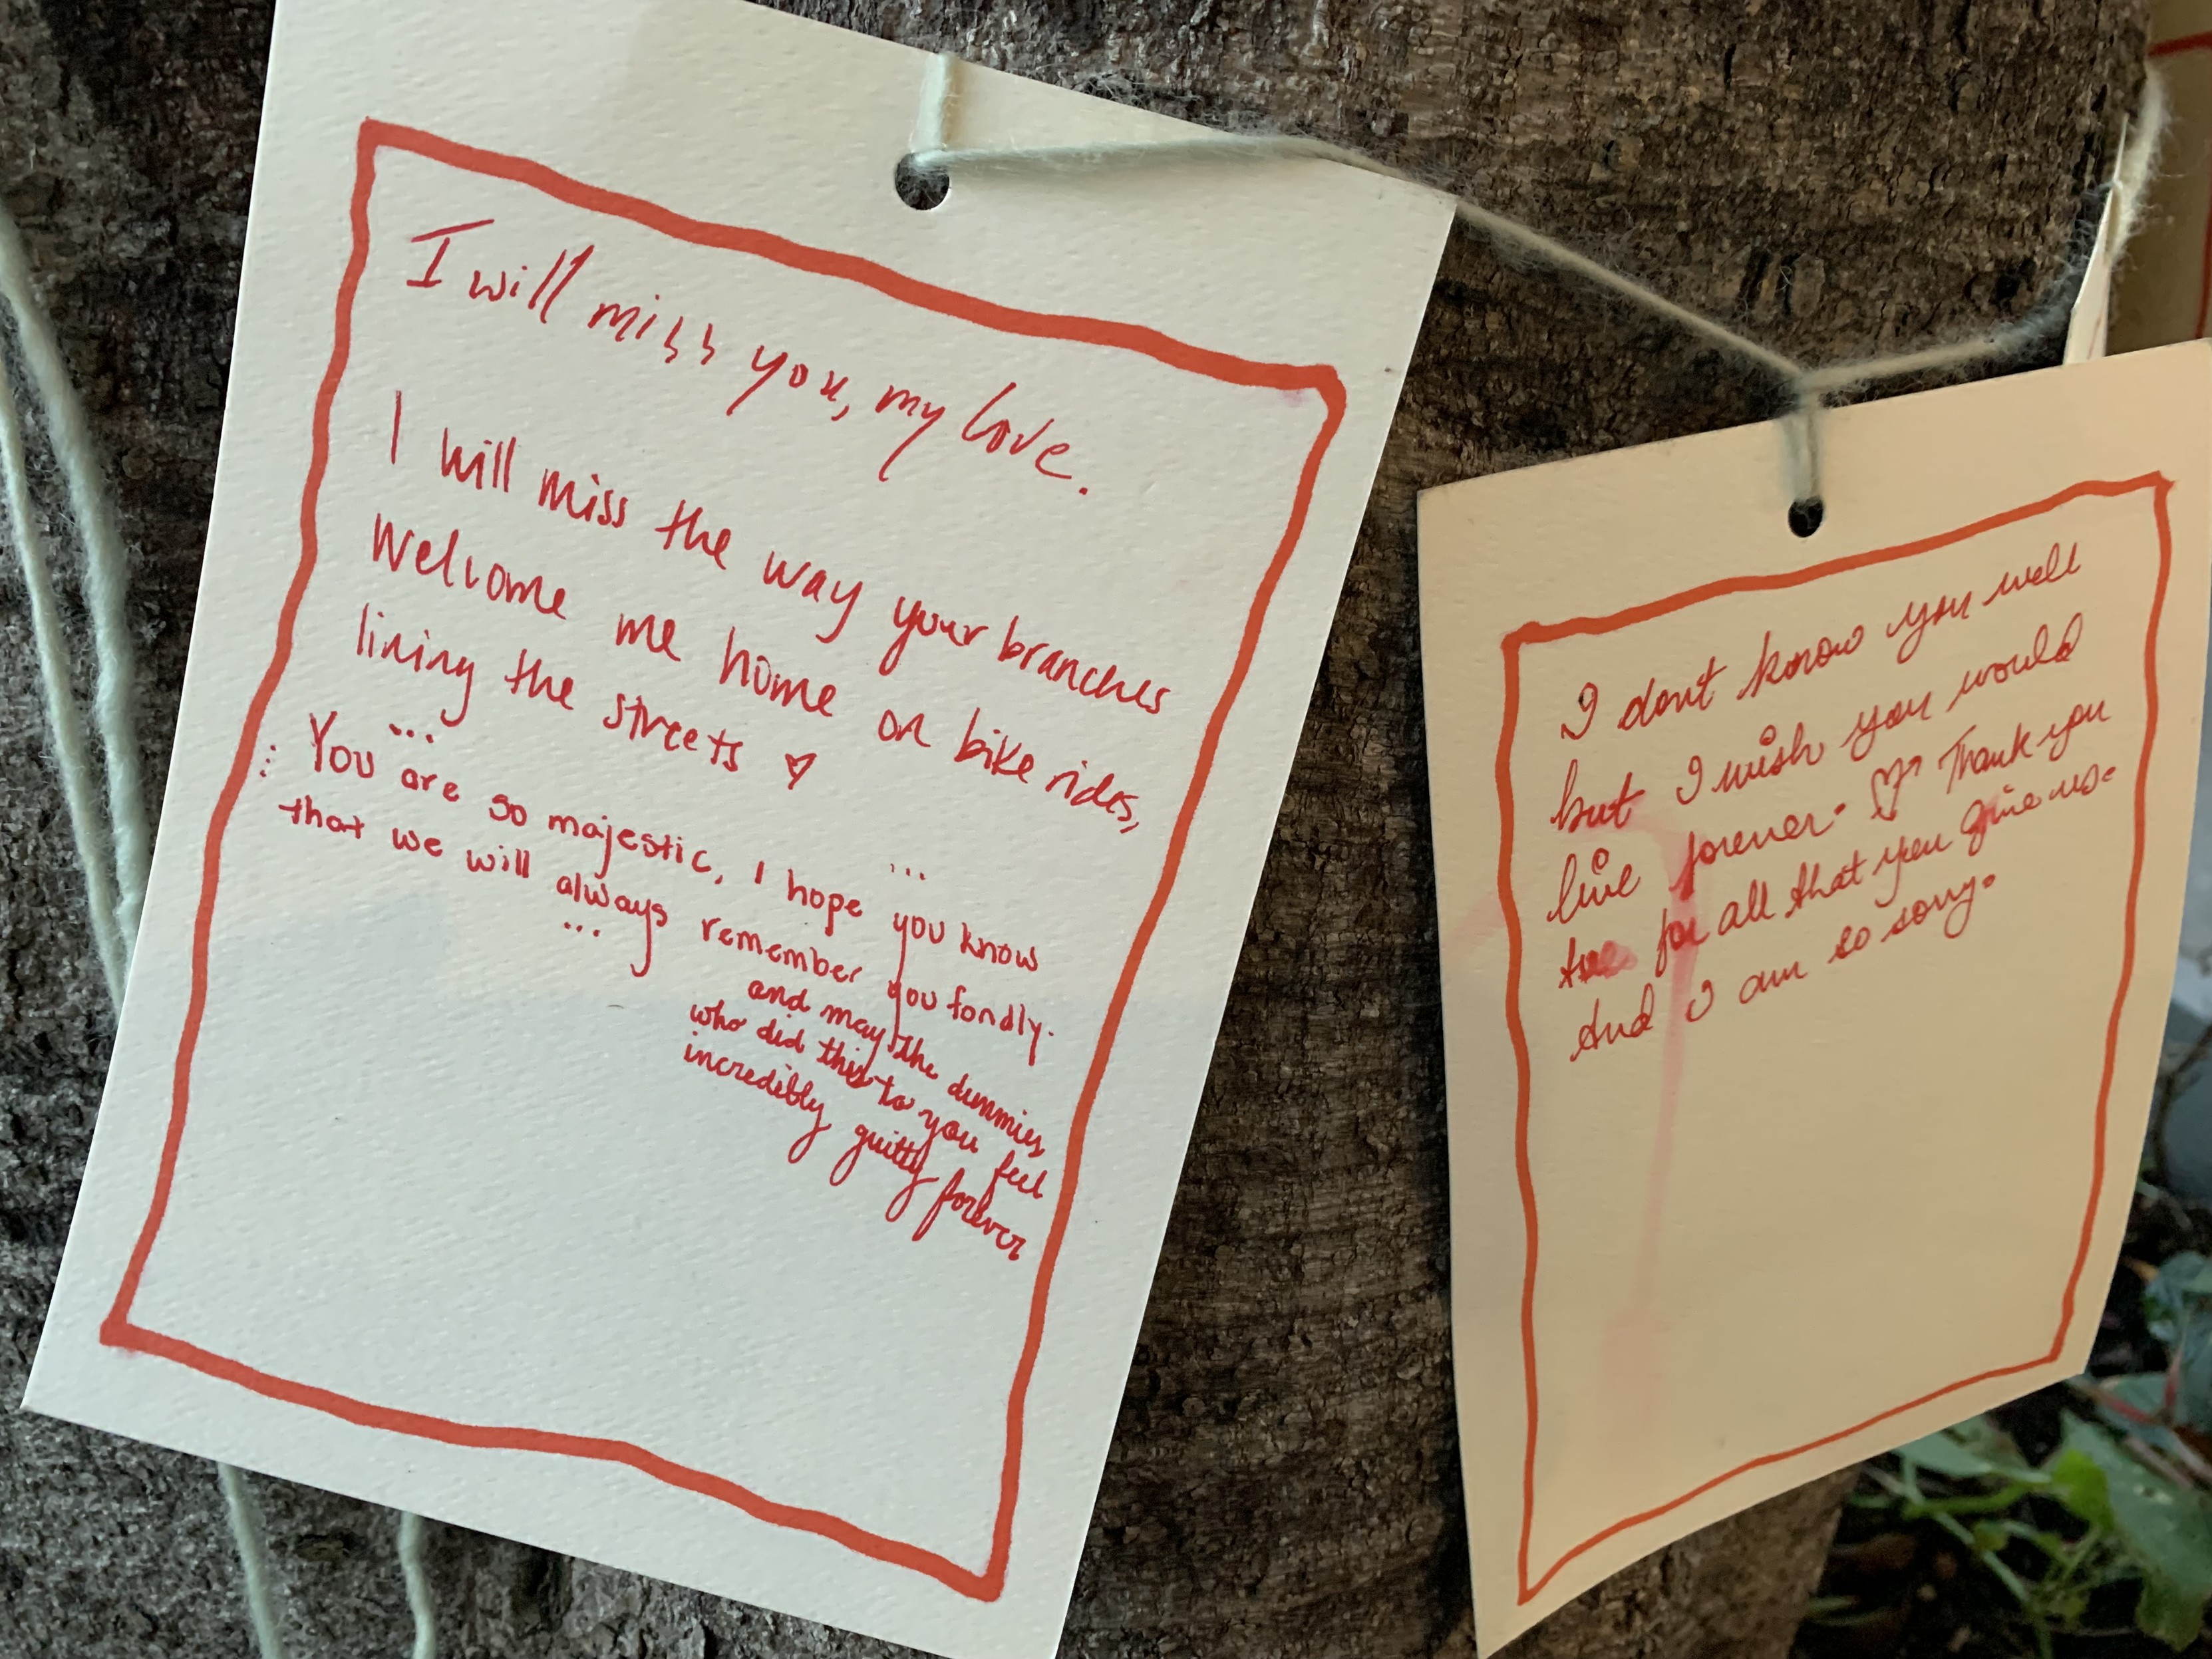 I will miss you, my love.
I will miss the way your branches
Welcome me home on bike rides,
lining the streets ♡
...
You are so majestic, I hope you know
...
that we will always remember you fondly.
...
and may the dummies
who did this to you feel
incredibly guilty forever
I dont know you well
but I wish you would
live forever. ♡ Thank you
for all that you give us.
And I am so sorry.